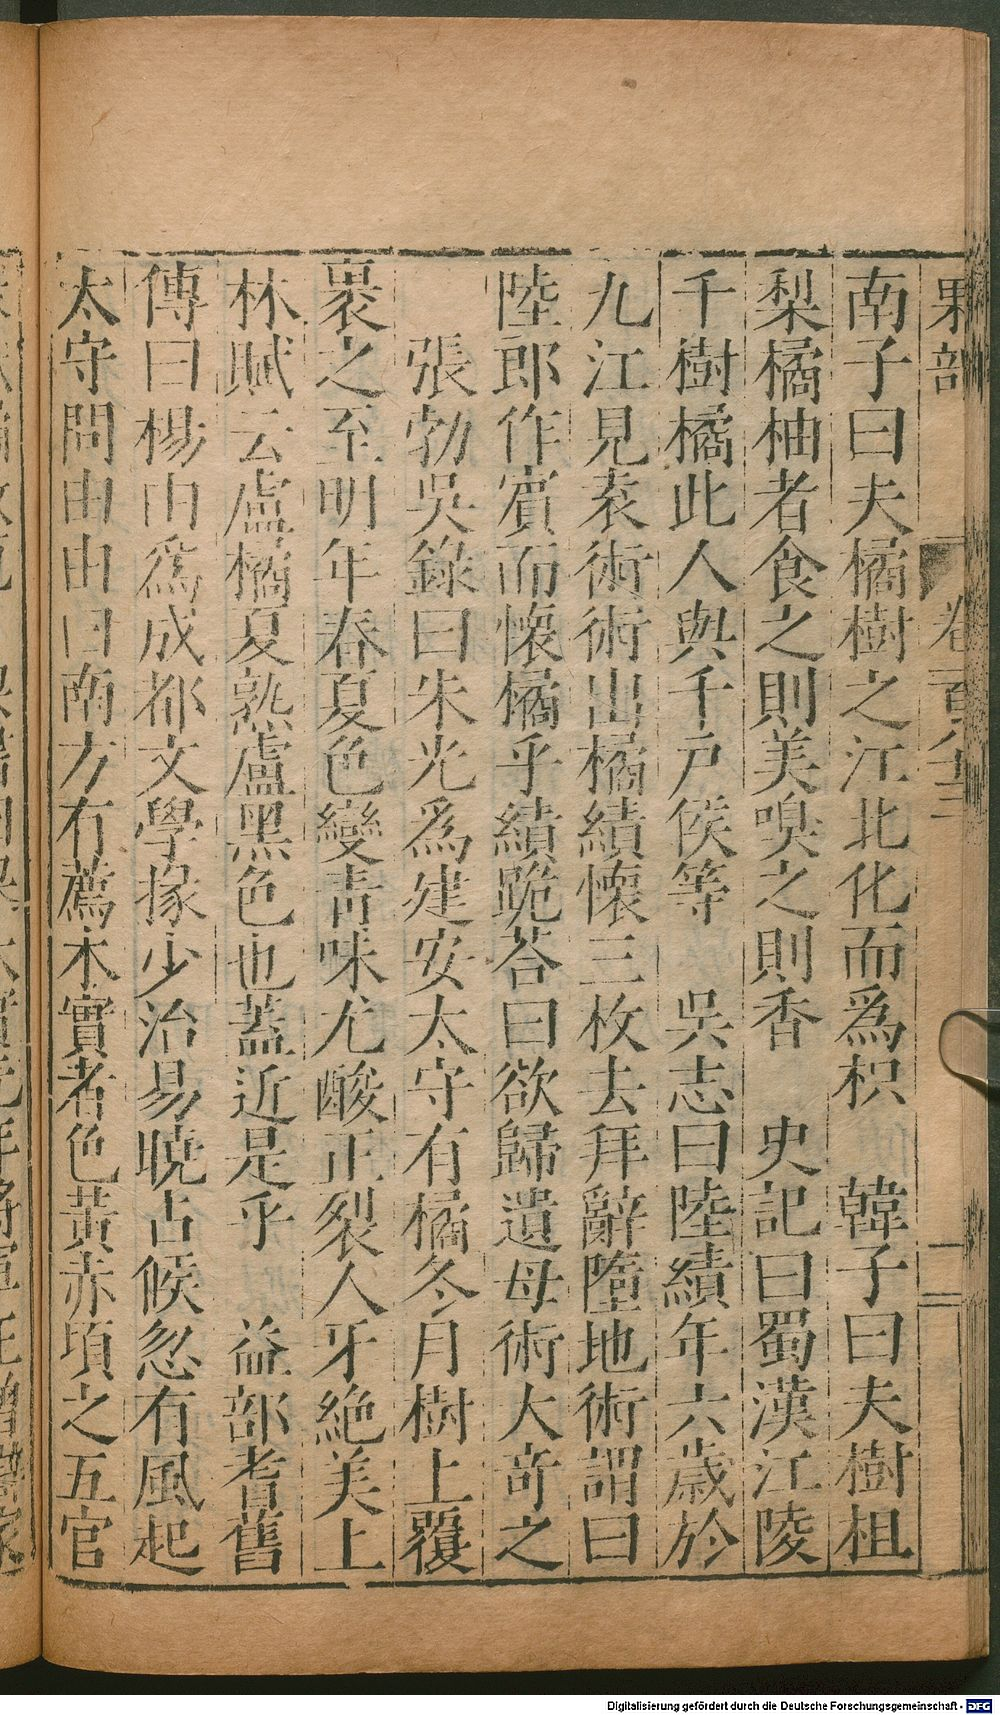 果部
卷百八十三
南子曰夫橘樹之江北化而爲枳　韓子曰夫樹柤
梨橘柚者食之則美嗅之則香　史記曰蜀漢江陵
千樹橘此人與千戶侯等　吳志曰陸績年六歲於
九江見袁術術出橘績懷三枚去拜辭墮地術謂曰
陸郎作賓而懷橘乎績跪荅曰欲歸遺母術大奇之
張勃吳錄曰朱光爲建安太守有橘冬月樹上覆
裹之至明年春夏色變青味尤酸正裂人牙絶美上
林賦云盧橘夏熟盧黑色也蓋近是乎　益部耆舊
傳曰楊由爲成都文學掾少治易曉占候忽有風起
太守問由由曰南方有薦木實者色黃赤頃之五官
Digitalisierung gefördert durch die Deutsche Forschungsgemeinschaft - DFG